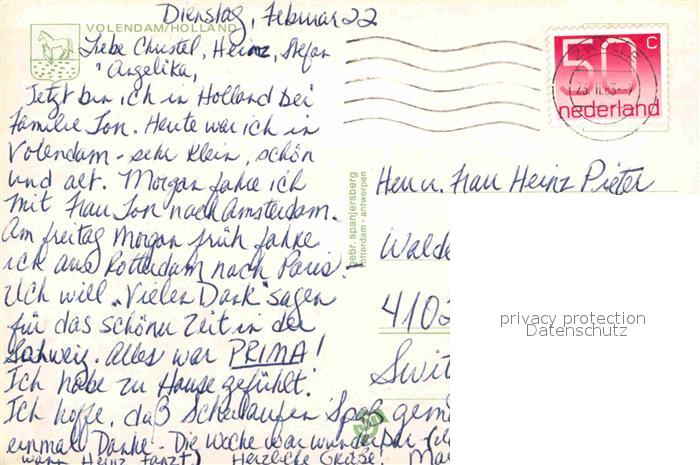 Dienstag, Februar 22
VOLENDAM/HOLLAND
Liebe Christel, Heinz, Stefan
Angelika,
Jetzt bin ich in Holland bei
Familie Ton. Heute war ich in
Volendam - sehr klein, schön
und alt. Morgan fahre ich
mit Frau Ton nach Amsterdam.
Am freitag Morgan früh fahre
ich aus Rotterdam nach Paris. -
Ich will „Vielen Dank" sagen
für das schöne Zeit in der
Schweiz. Alles war PRIMA!
Ich habe zu Hause gefühlt.
Ich hoffe, daß Schilaufen Spaß gem
einmal Danke - Die Woche war wunderbar
wann Heinz tanzt) Herzliche Grüße! Ma
gebr. spanjersberg
rotterdam - antwerpen
50 c
nederland
Herr u. Frau Heinz Pieter
Walde
410
Swit
privacy protection
Datenschutz